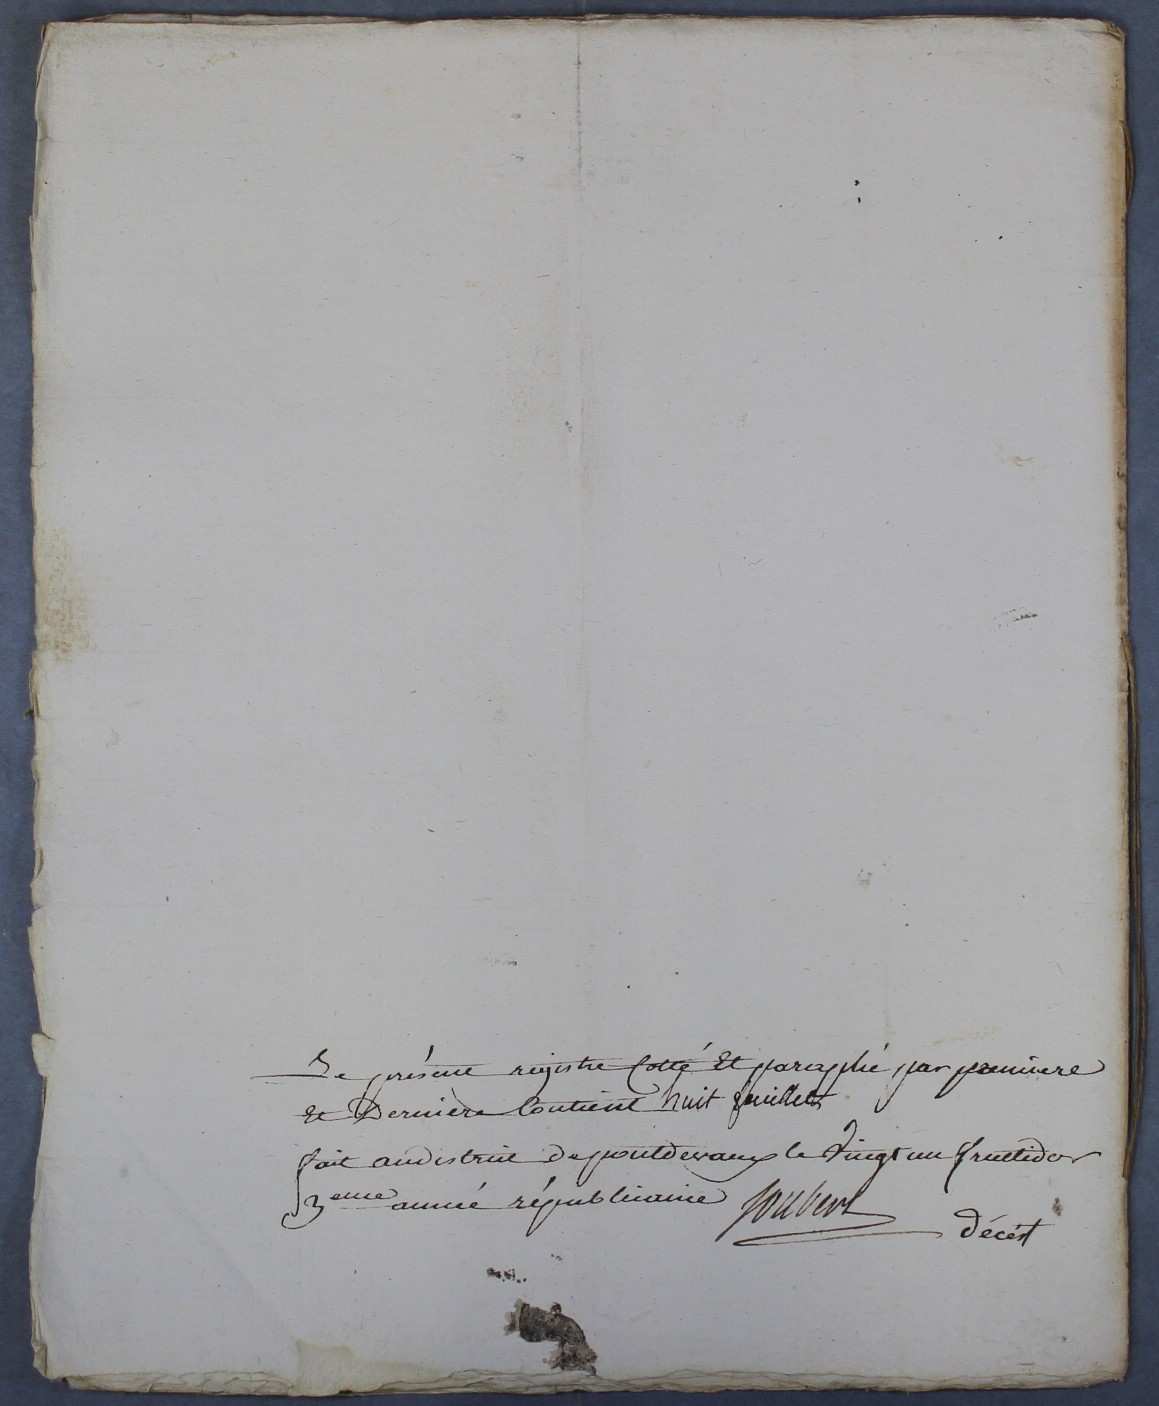 Le présent registre Cotté Et paraphé par premiere
Et Derniere Contient huit feuillets
fait au district de pontdevaux le vingt un fructidor
3eme année républicaine Joubert
Décès